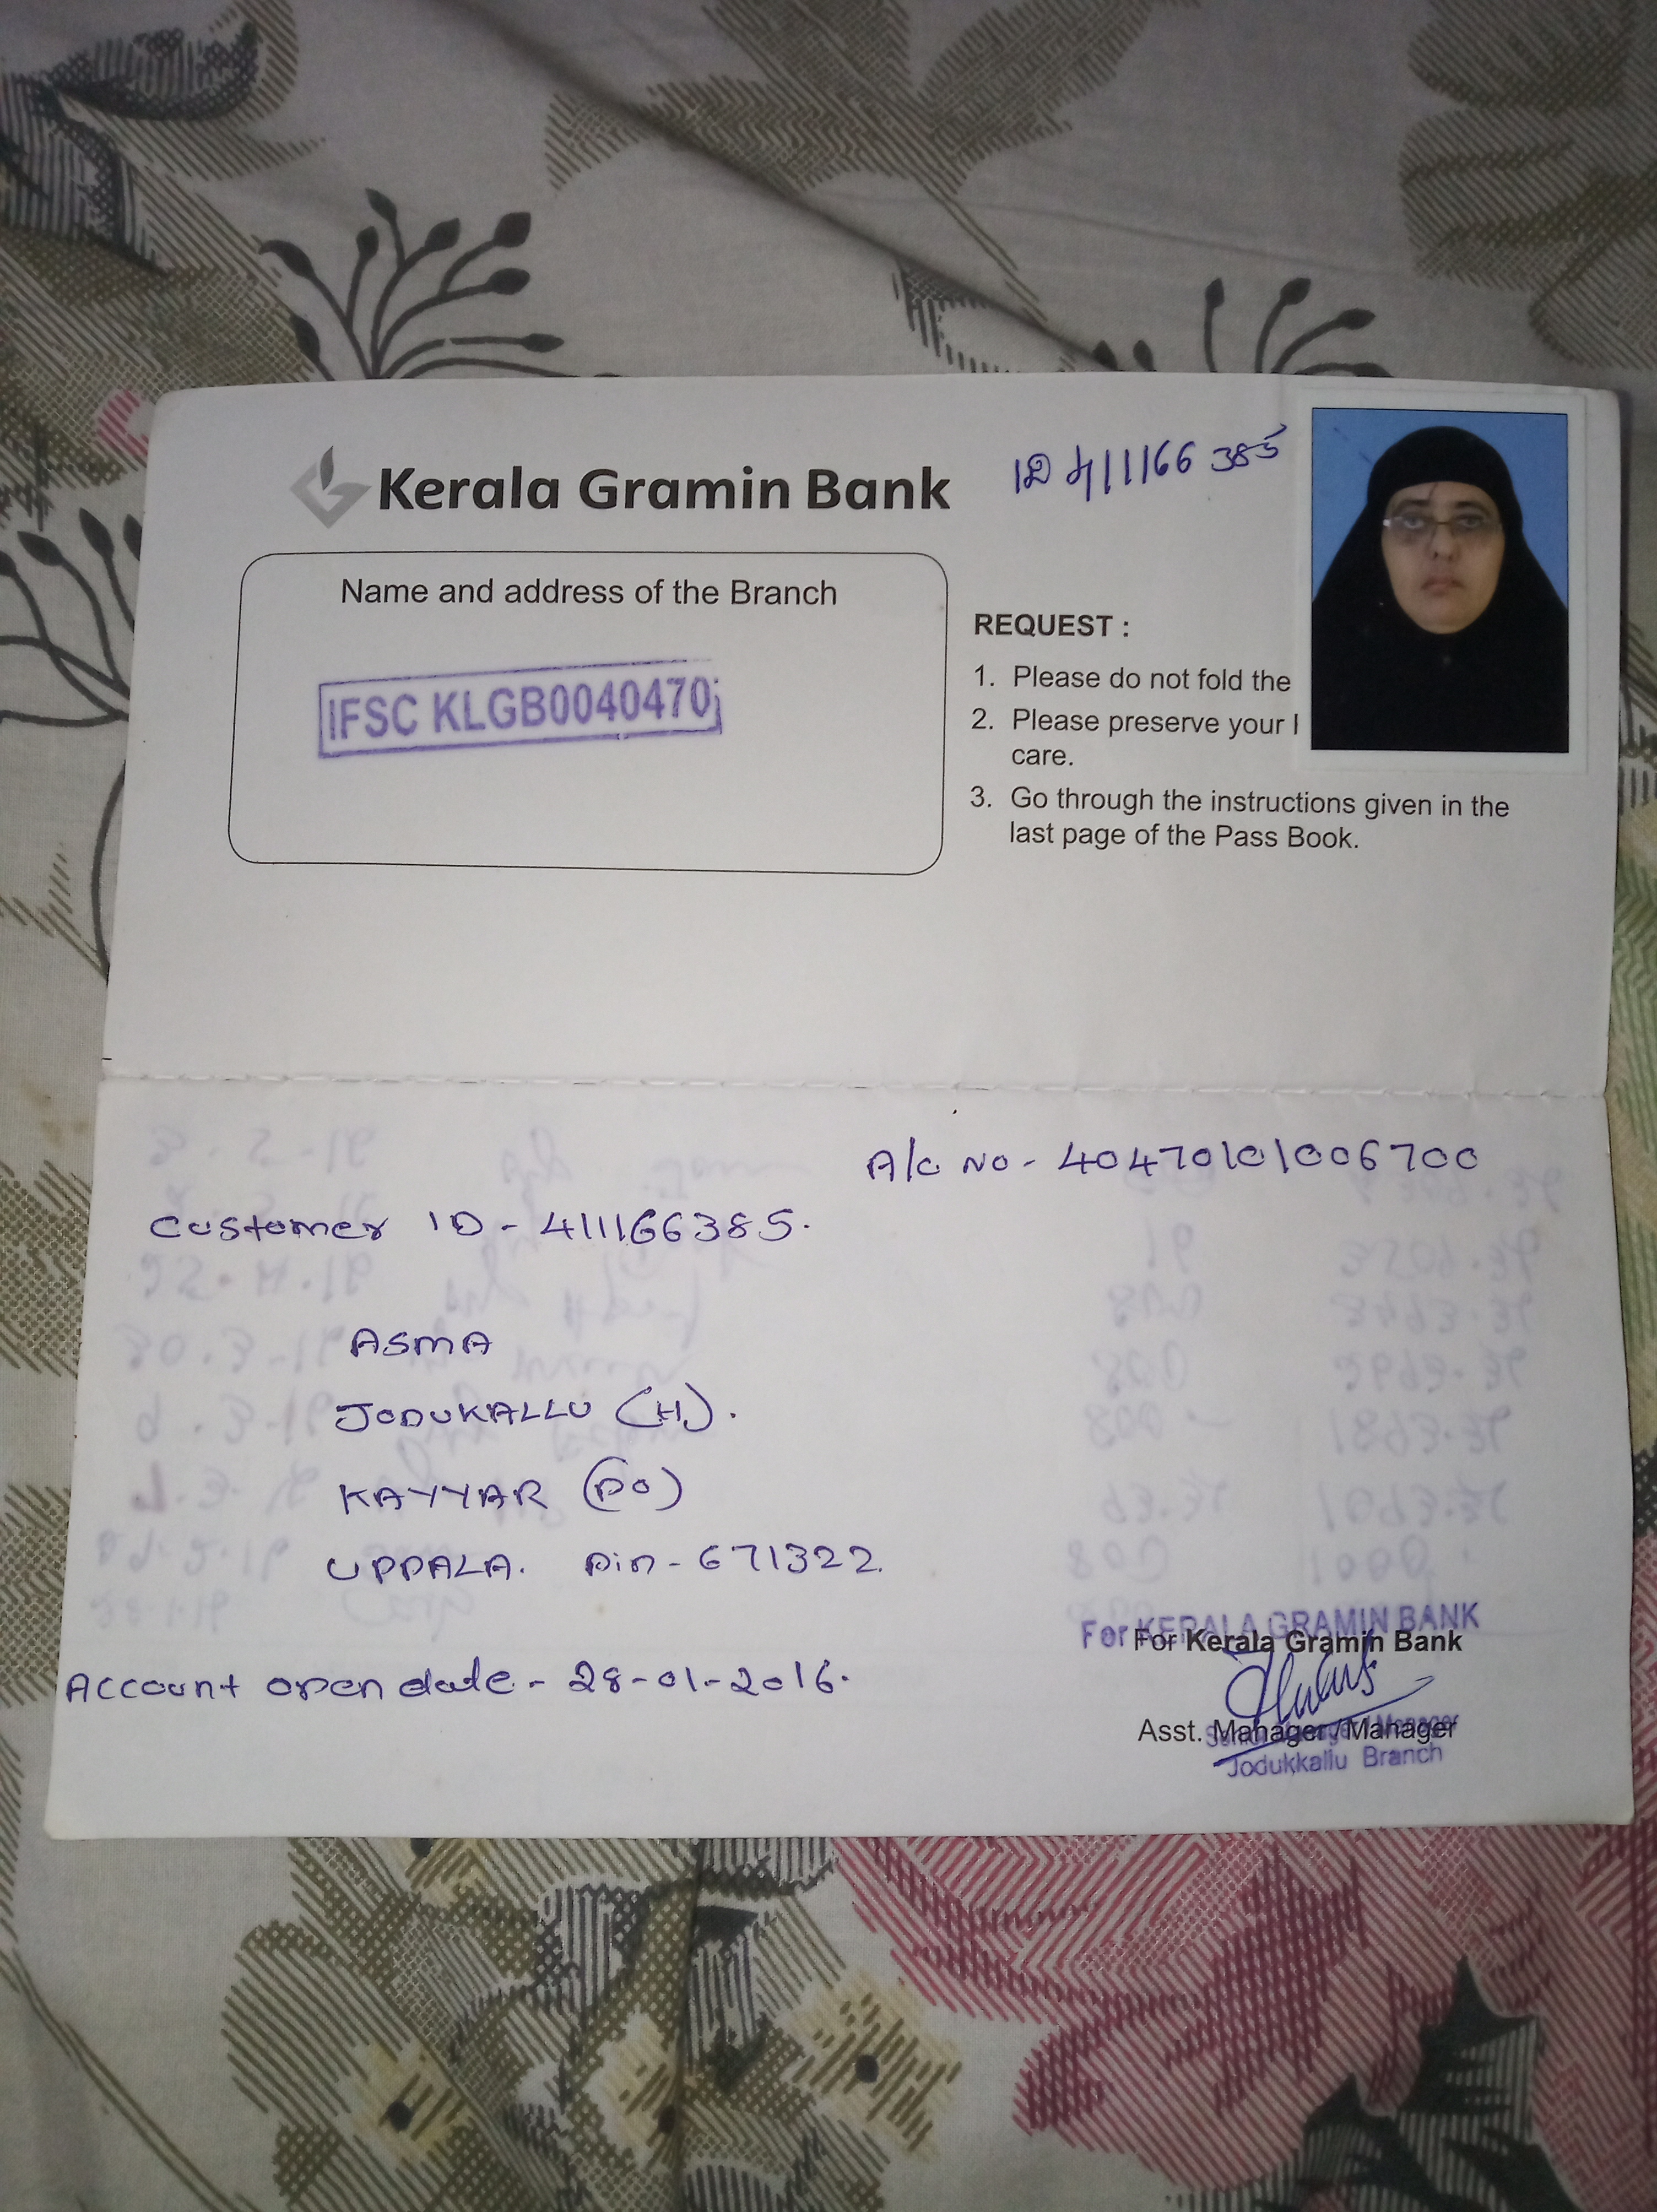 Kerala Gramin Bank
ID 411166 385
Name and address of the Branch
IFSC KLGB0040470
REQUEST :
1. Please do not fold the
2. Please preserve your
care.
3. Go through the instructions given in the
last page of the Pass Book.
A/c No - 40470101006700
Customer ID - 411166385.
ASMA
JODUKALLU (H).
KAYYAR (PO)
UPPALA. Pin - 671322.
For KERALA GRAMIN BANK
For Kerala Gramin Bank
Account open date - 28-01-2016.
Asst. Manager / Manager
Senior Manager / Manager
Jodukkallu Branch